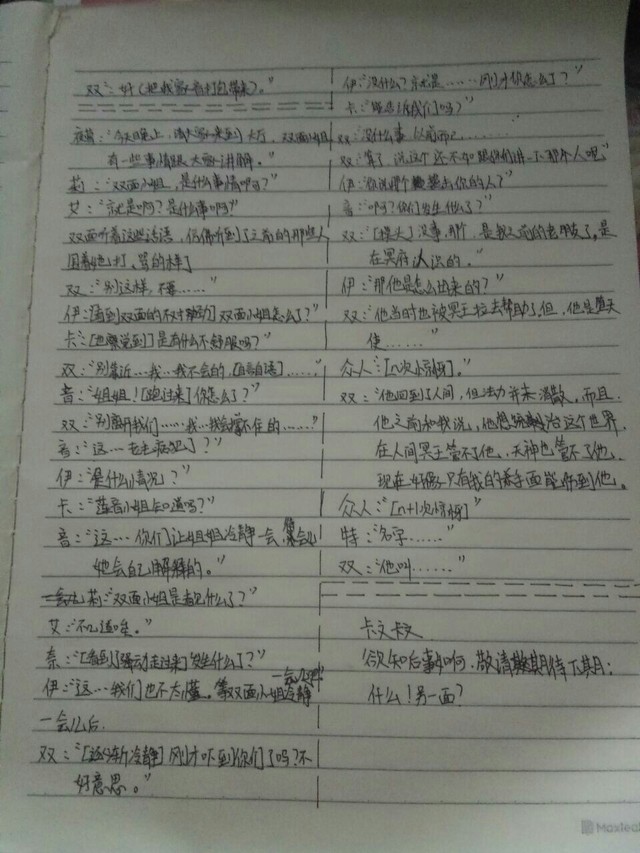 双："好（把我家音打包带来）。"
夜莺："今天晚上，请大家来到大厅，双面小姐
有一些事情跟大家讲解。"
莉："双面小姐，是什么事情啊？"
艾："就是啊？是什么事吗？"
双面听着这些话语，仿佛听到了之前的那些人
围着她打、骂的样子
双："别这样，不要……"
伊："[看到双面的不对劲]双面小姐怎么了？"
卡："[也察觉到]是有什么不舒服吗？"
双："别靠近……我…我不会的，[自言自语]……"
音："姐姐！[跑过来]你怎么了？"
双："别离开我们……我…我会撑不住的……"
音："这…老毛病犯了？"
伊："是什么情况？"
卡："莲音小姐知道吗？"
音："这…你们让姐姐冷静一会，等会儿
她会自己解释的。"
莉："双面小姐是想起什么了？"
艾："不知道哇。"
奈："[看到了骚动走过来]发生什么了？"
伊："这…我们也不太懂。等双面小姐冷静一会儿吧"
一会儿后.
双："[逐渐冷静]刚才吓到你们了吗？不
好意思。"
伊："没什么？就是……刚才你怎么了？"
卡："能告诉我们吗？"
双："没什么事，从前而已………"
双："算了，说这个还不如跟你们讲一下那个人呢"
伊："你说那个袭击你的人？"
音："啊？你们发生什么了？"
双："[摸头]没事，那个，是我之前的老朋友了，是
在冥府认识的。"
伊："那他是怎么出来的？"
双："他当时也被冥王拉去帮助了，但，他是堕天
使……"
众人："[n次惊讶]。"
双："他回到了人间，但法力并未消散，而且
他之前和我说，他想统治这个世界，
在人间冥王管不了他，天神也管不了他。
现在好像只有我的善面能听到他。
众人："[n+1次惊讶]
特："名字……"
双："他叫……"
卡文卡文
欲知后事如何，敬请期待下期：
什么！另一面？
Maxleaf